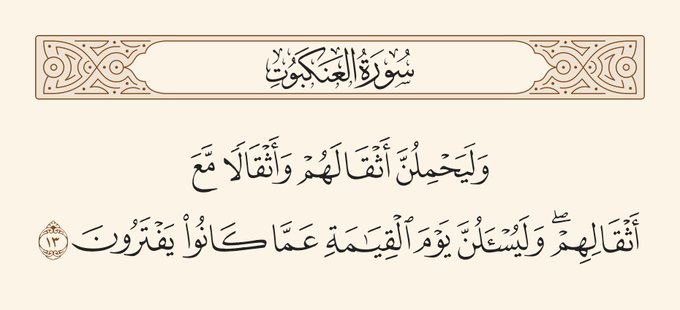 سُورَةُ العَنكَبُوتِ
وَلَيَحْمِلُنَّ أَثْقَالَهُمْ وَأَثْقَالًا مَّعَ
أَثْقَالِهِمْۖ وَلَيُسْـَٔلُنَّ يَوْمَ ٱلْقِيَٰمَةِ عَمَّا كَانُوا۟ يَفْتَرُونَ ١٣